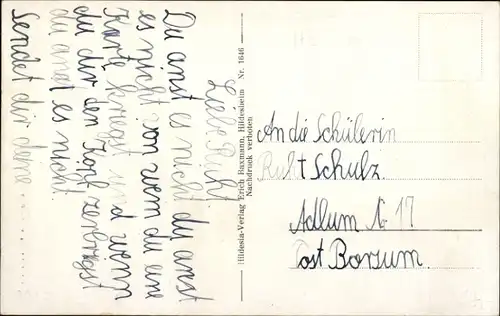 Liebe Ruht!
Du anst es nicht du anst
es nicht von wem du eine
Karte kriegst und wenn
du dir den Kopf zerbrigst
du anst es nicht!
Sendet dir deine
Hildesia-Verlag Erich Baxmann, Hildesheim Nr. 1646
Nachdruck verboten
An die Schülerin
Ruht Schulz
Adlum N 17
Post Borsum